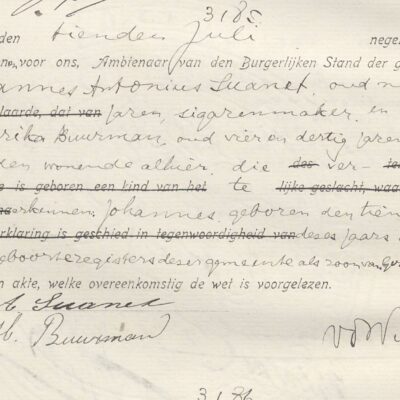 3185
den tienden Juli nege
voor ons, Ambtenaar van den Burgerlijken Stand der g
annes Antonius Suanet, oud n
laarde, dat van jaren, sigarenmaker, en
rika Buurman, oud vier en dertig jaren
den wonende alhier, die des ver- te
e is geboren een kind van het te lijke geslacht, waa
erkennen: Johannes, geboren den tien
rklaring is geschied in tegenwoordigheid van dezes jaars
geboorteregisters dezer gemeente als zoon van
n akte, welke overeenkomstig de wet is voorgelezen.
Suanet
Buurman